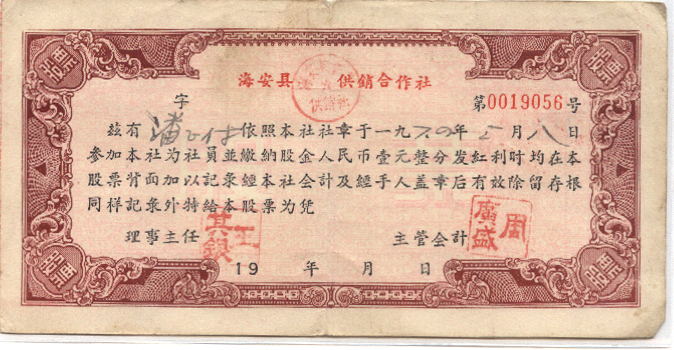 股票
股票
海安县 供銷合作社
供銷
字
第0019056号
兹有潘 依照本社社章于一九 年 月八日
参加本社为社員並缴納股金人民币壹元整分发紅利时均在本
股票背面加以記彔經本社会計及經手人盖章后有效除留存根
同样記彔外特給本股票为凭
理事主任 王其銀 主管会計 周廣盛
19 年 月 日
股票
股票